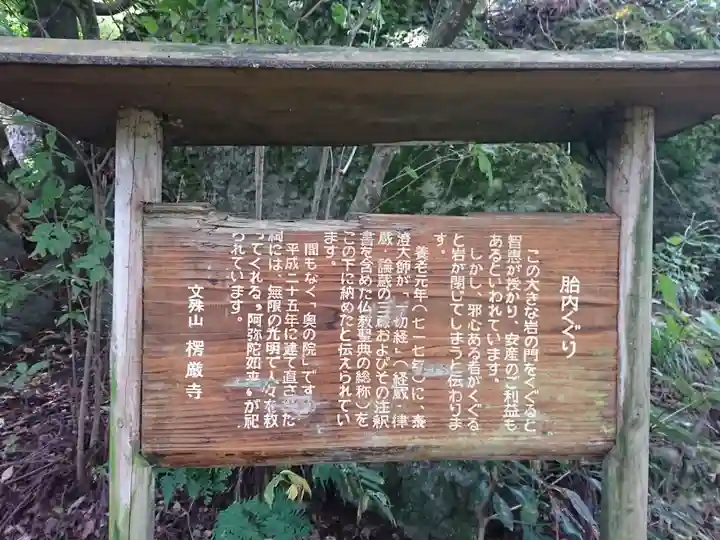 胎内くぐり
この大きな岩の門をくぐると
智恵が授かり、安産のご利益も
あるといわれています。
しかし、邪心ある者がくぐる
と岩が閉じてしまうと伝わりま
す。
養老元年(七一七年)に、泰
澄大師が「一切経」(経蔵・律
蔵・論蔵の三蔵およびその注釈
書を含めた仏教聖典の総称)を
この下に納めたと伝えられてい
ます。
間もなく、奥の院です。
平成二十五年に建て直された
祠には、無限の光明で人々を救
ってくれる『阿弥陀如来』が祀
られています。
文殊山 楞厳寺